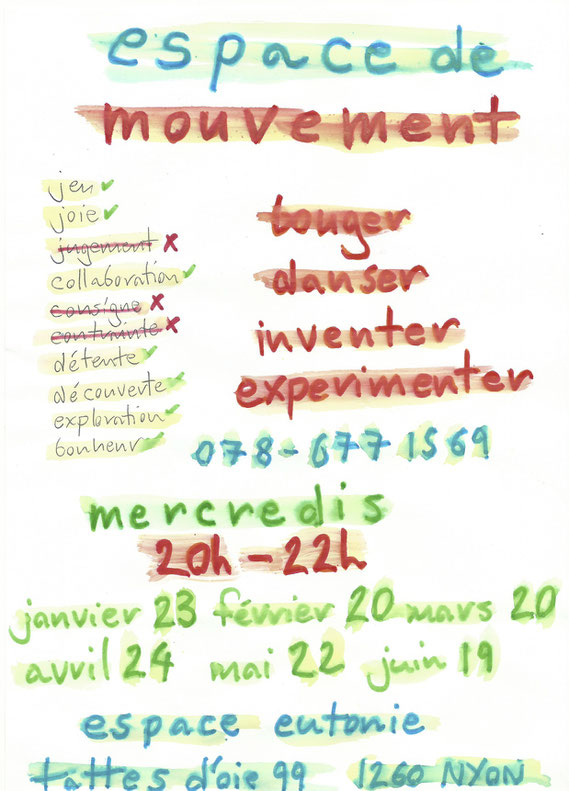 espace de
mouvement
jeu ✓
joie ✓
jugement x
collaboration ✓
consigne x
contrainte x
détente ✓
découverte ✓
exploration ✓
bonheur ✓
bouger
danser
inventer
experimenter
078-677 1569
mercredis
20h - 22h
janvier 23 février 20 mars 20
avril 24 mai 22 juin 19
espace eutonie
tattes d'oie 99 1260 NYON